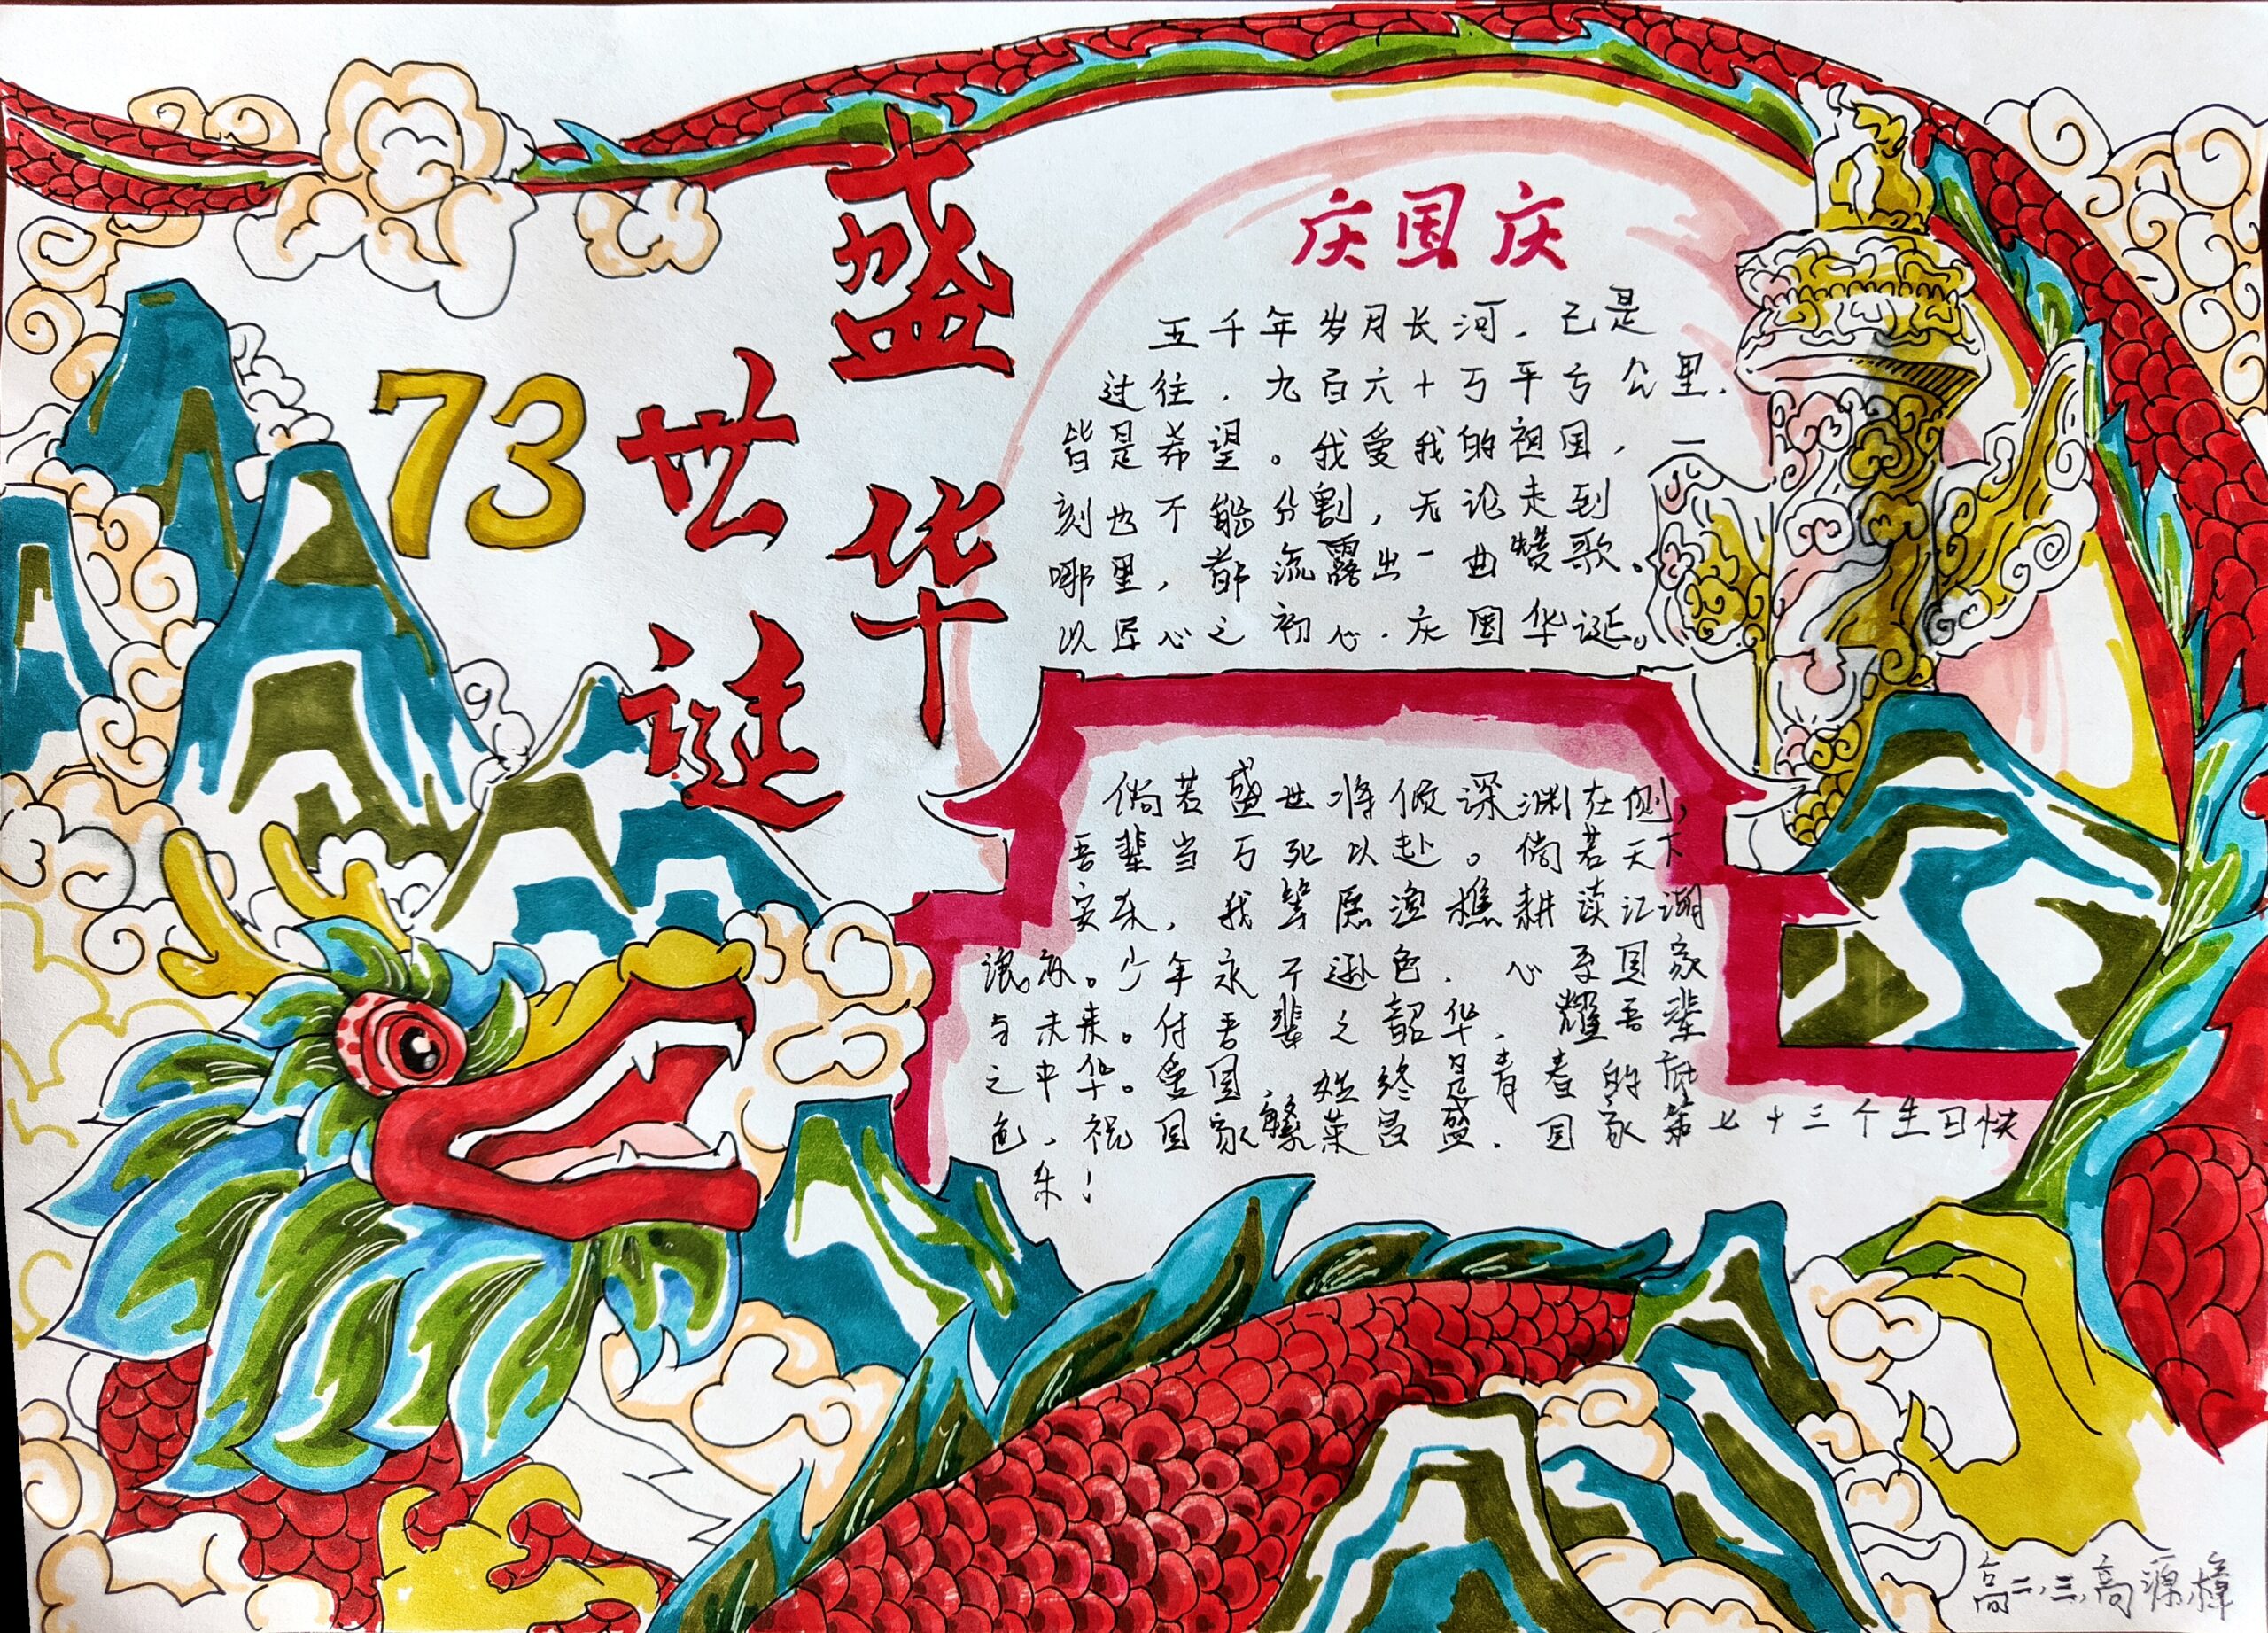 盛世华诞
73
庆国庆
五千年岁月长河，已是
过往，九百六十万平方公里，
皆是希望。我爱我的祖国，一
刻也不能分割，无论走到
哪里，都流露出一曲赞歌。
以匠心之初心，庆国华诞。
倘若盛世将倾深渊在侧，
吾辈当万死以赴。倘若天下
安杀，我等愿渔樵耕读江湖
浪。少年永不逊色，心系国家
与未来。付吾辈之韶华，耀吾辈
之中华。爱国，始终是青春的底
色，祝国家繁荣昌盛，国家第七十三个生日快
乐！
高二、三，高源樟